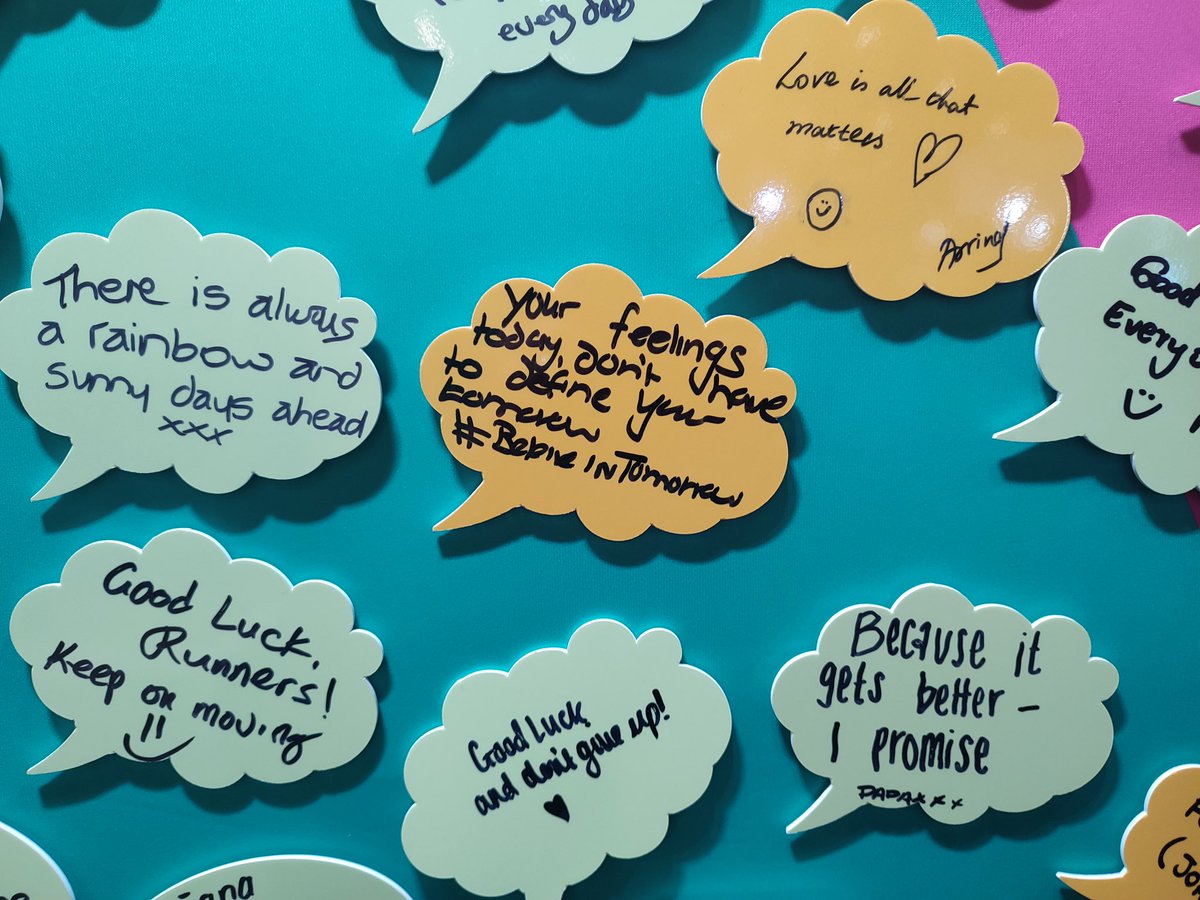 every day
Love is all that
matters
There is always
a rainbow and
sunny days ahead
xxx
Your feelings
today, don't have
to define your
tomorrow
#BelieveInTomorrow
Good
Every
Good Luck,
Runners!
Keep on moving
Good Luck
and don't give up!
Because it
gets better -
I promise
PAPAxxx